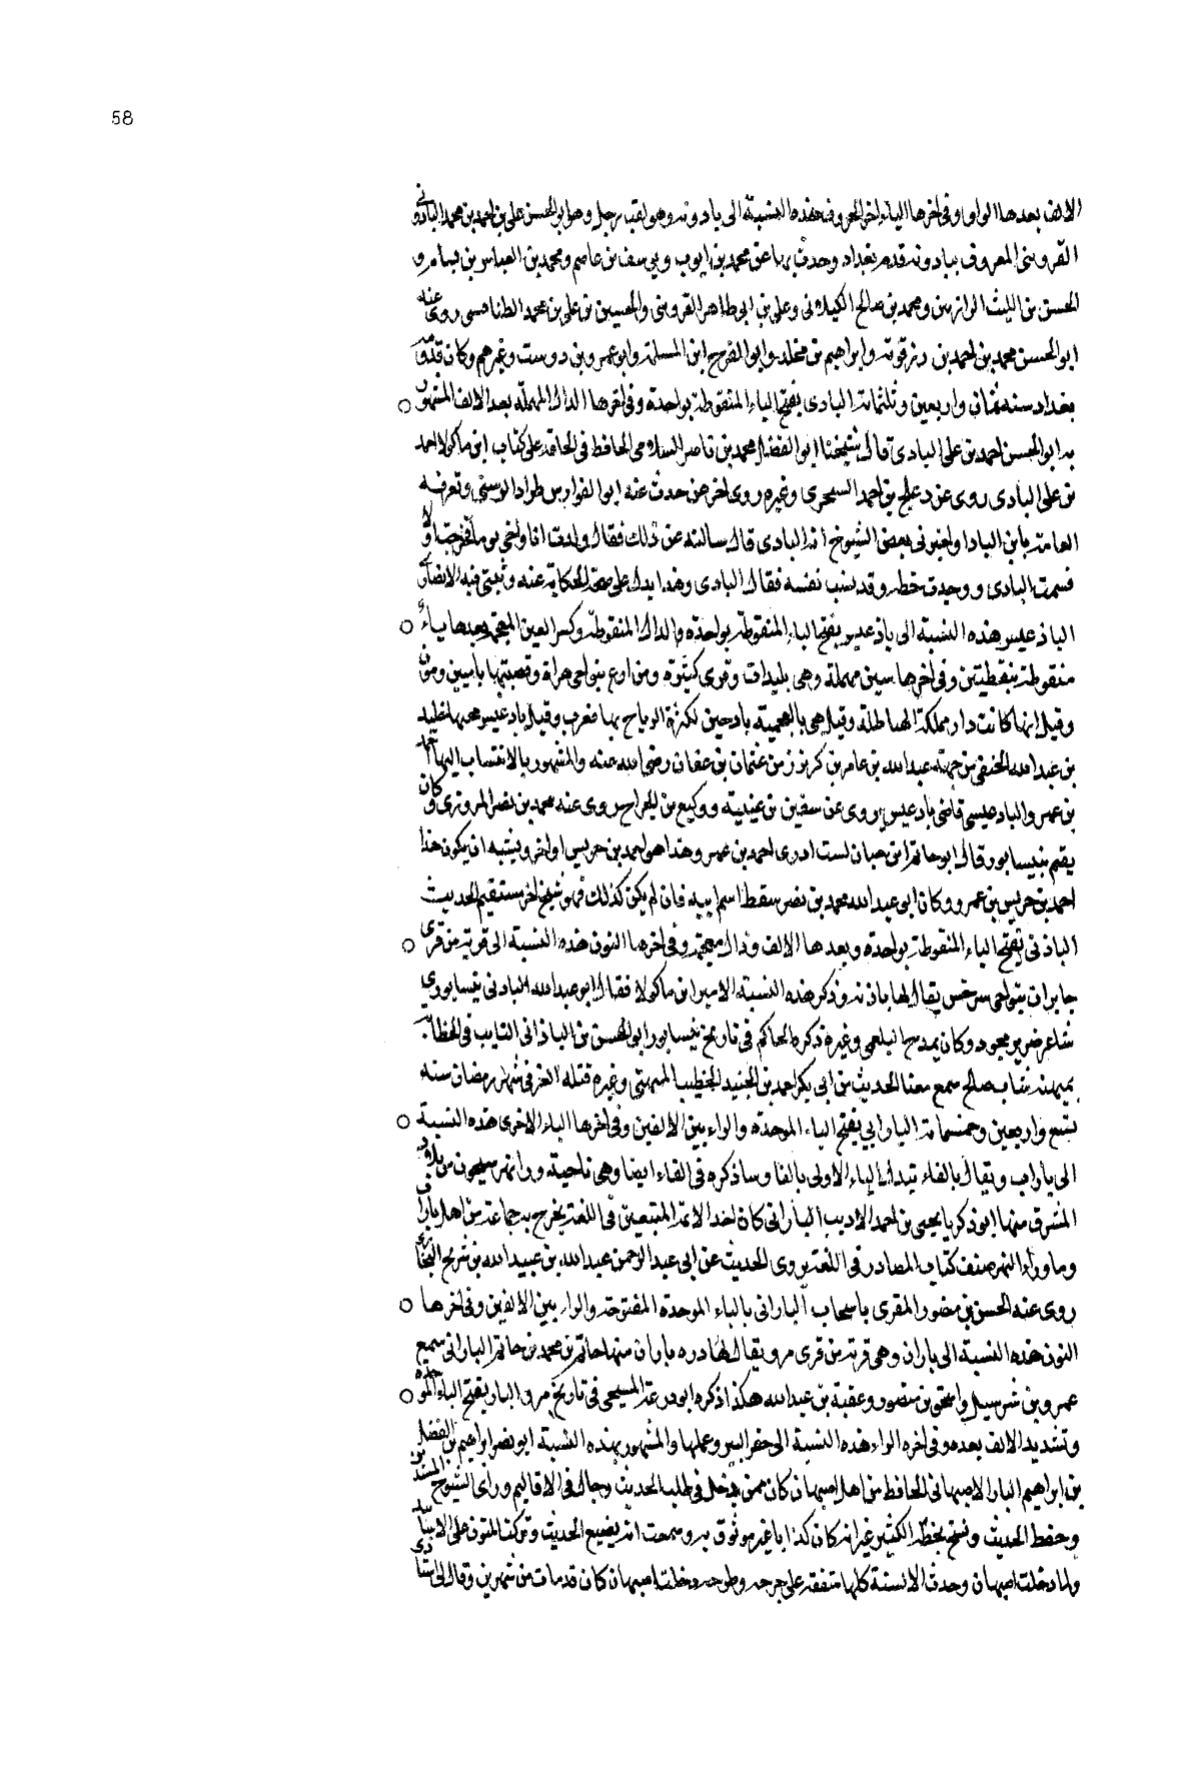 58
الالف بعدها الواو وفى اخرها الياء اخر الحروف هذه النسبة الى بادويه وهو لقب رجل وهو ابو الحسن على بن احمد بن محمد البادوى
القزوينى المعروف ببادويه قدم بغداد وحدث بها عن محمد بن ايوب ويوسف بن عاصم ومحمد بن العباس بن بسام و
الحسن بن الليث الرازيين ومحمد بن صالح الكيلانى وعلى بن ابو طاهر القزوينى والحسين بن على بن محمد الطنافسى روى عنه
ابو الحسن محمد بن احمد بن رزقويه وابراهيم بن مخلد وابو الفرج ابن المسلمة وابو عمرو بن دوست وغيرهم وكان قدومه
بغداد سنه ثمان واربعين وثلثمائة البادى بفتح الباء المنقوطة بواحدة وفى اخرها الدال المهملة بعد الالف المشهور
به ابو الحسن احمد بن على البادى قال شيخنا ابو الفضل محمد بن ناصر السلامى الحافظ فى الحاقه على كتاب ابن ماكولا احمد
بن على البادى روى عن دعلج بن احمد السجزى وغيره روى اخر من حدث عنه ابو الفوارس طراد الزينبى وتعرفه
العامة بابن البادا واخبرنى بعض الشيوخ انه البادى قال سالته عن ذلك فقال ولدت انا واخى توما فخرجت اولا
فسميت البادى ووجدت خطه وقد نسب نفسه فقال البادى وهذا يدل على صحة الحكاية عنه وثبتنى فيه الانصارى
الباذغيسى هذه النسبة الى باذغيس بفتح الباء المنقوطة بواحدة والذال المنقوطة وكسر الغين المعجمة بعدها ياء
منقوطة بنقطيتن وفى اخرها سين مهملة وهى بليدات وقرى كثيرة ومزارع بنواحى هراة وقصبتها بامئين وبون
وقيل انها كانت دار مملكة الهياطلة وقيل هى بالعجمية بادخيز لكثرة الرياح بها فعرب وقيل بادغيس فتحها خليد
بن عبد الله الحنفى من جهة عبد الله بن عامر بن كريز زمن عثمان بن عفان رضى الله عنه والمشهور بالانتساب اليها احمد
بن عمرو الباذغيسى قاضى بادغيس يروى عن سفين بن عيينة ووكيع بن الجراح روى عنه محمد بن نصر المروزى وكان
يقيم بنيسابور قال ابو حاتم ابن حبان لست ادرى احمد بن عمر وهذا هو احمد بن حريس او اخر ويشبه ان يكون هذا
احمد بن حريس بن عمرو وكان ابى عبد الله محمد بن نصر سقط اسم ابيه فان لم يكن كذلك فهو شيخ اخر مستقيم الحديث
الباذنى بفتح الباء المنقوطة بواحدة وبعدها الالف وذال معجمة وفى اخرها النون هذه النسبة الى قرية من قرى
جابران بنواحى سرخس يقال لها باذنه وذكر هذه النسبة الامير ابن ماكولا فقال ابو عبد الله الباذنى نيسابورى
شاعر ضرير مجود وكان يمدح البلعمى وغيره ذكره الحاكم فى تاريخ نيسابور ابو الحسن بن الباذانى النايب فى الخطابة
بميهنه شاب صالح سمع معنا الحديث من ابى بكر احمد بن الجنيد الخطيب الميهنى وغيره قتله الغز فى شهر رمضان سنه
تسع واربعين وخمسمائة البارابى بفتح الباء الموحدة والراء بين الالفين وفى اخرها الباء الاخرى هذه النسبة
الى باراب ويقال بالفاء تبدل الباء الاولى بالفا وساذكره فى الفاء ايضا وهى ناحية وراء نهر سيحون من بلاد
المشرق منها ابو ذكريا يحيى بن احمد الاديب البارابى كان احد الائمة المتبعين فى اللغة تخرج به جماعة من اهل باراب
وما وراء النهر صنف كتاب المصادر فى اللغة يروى الحديث عن ابى عبد الرحمن عبد الله بن عبيد الله بن شريح البخارى
روى عنه الحسن بن منصور المقرى باسحاب البارانى بالباء الموحدة المفتوحة والراء بين الالفين وفى اخرها
النون هذه النسبة الى باران وهى قرية من قرى مرو يقال لها دره باران منها حاتم بن محمد بن حاتم البارانى سمع
عمرو بن شرسيل واسحق بن منصور وعقبة بن عبد الله هكذا ذكره ابو زرعة السبحى فى تاريخ مرو البار بفتح الباء الموحدة
وتشديد الالف بعده وفى اخره الراء هذه النسبة الى حفر البير وعملها والمشهور بهذه النسبة ابو نصر ابراهيم بن الفضل
بن ابراهيم البار الاصبهانى الحافظ من اهل اصبهان كان ممن رحل فى طلب الحديث وجال فى الاقاليم وراى الشيوخ
وحفظ الحديث ونسخ بخطه الكثير غير انه كان كذابا غير موثوق به وسمعت انه يضع الحديث ويركب المتون على الاسانيد
ولما دخلت اصبهان وجدت الالسنة كلها متفقه على جرحه وطرحه ودخلت اصبهان كان قد مات من شهرين وقال لى